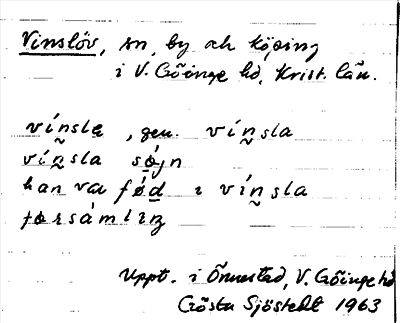 Vinslöv, sn, by och köping
i V. Göinge hd, Krist. län.
vínslə, gen. víṋsla
víṋsla sǿ̱jn
han va fǿḏ ı víṋsla
fɵrsámlıŋ
Uppt. i Önnestad, V. Göinge hd
Gösta Sjöstedt 1963